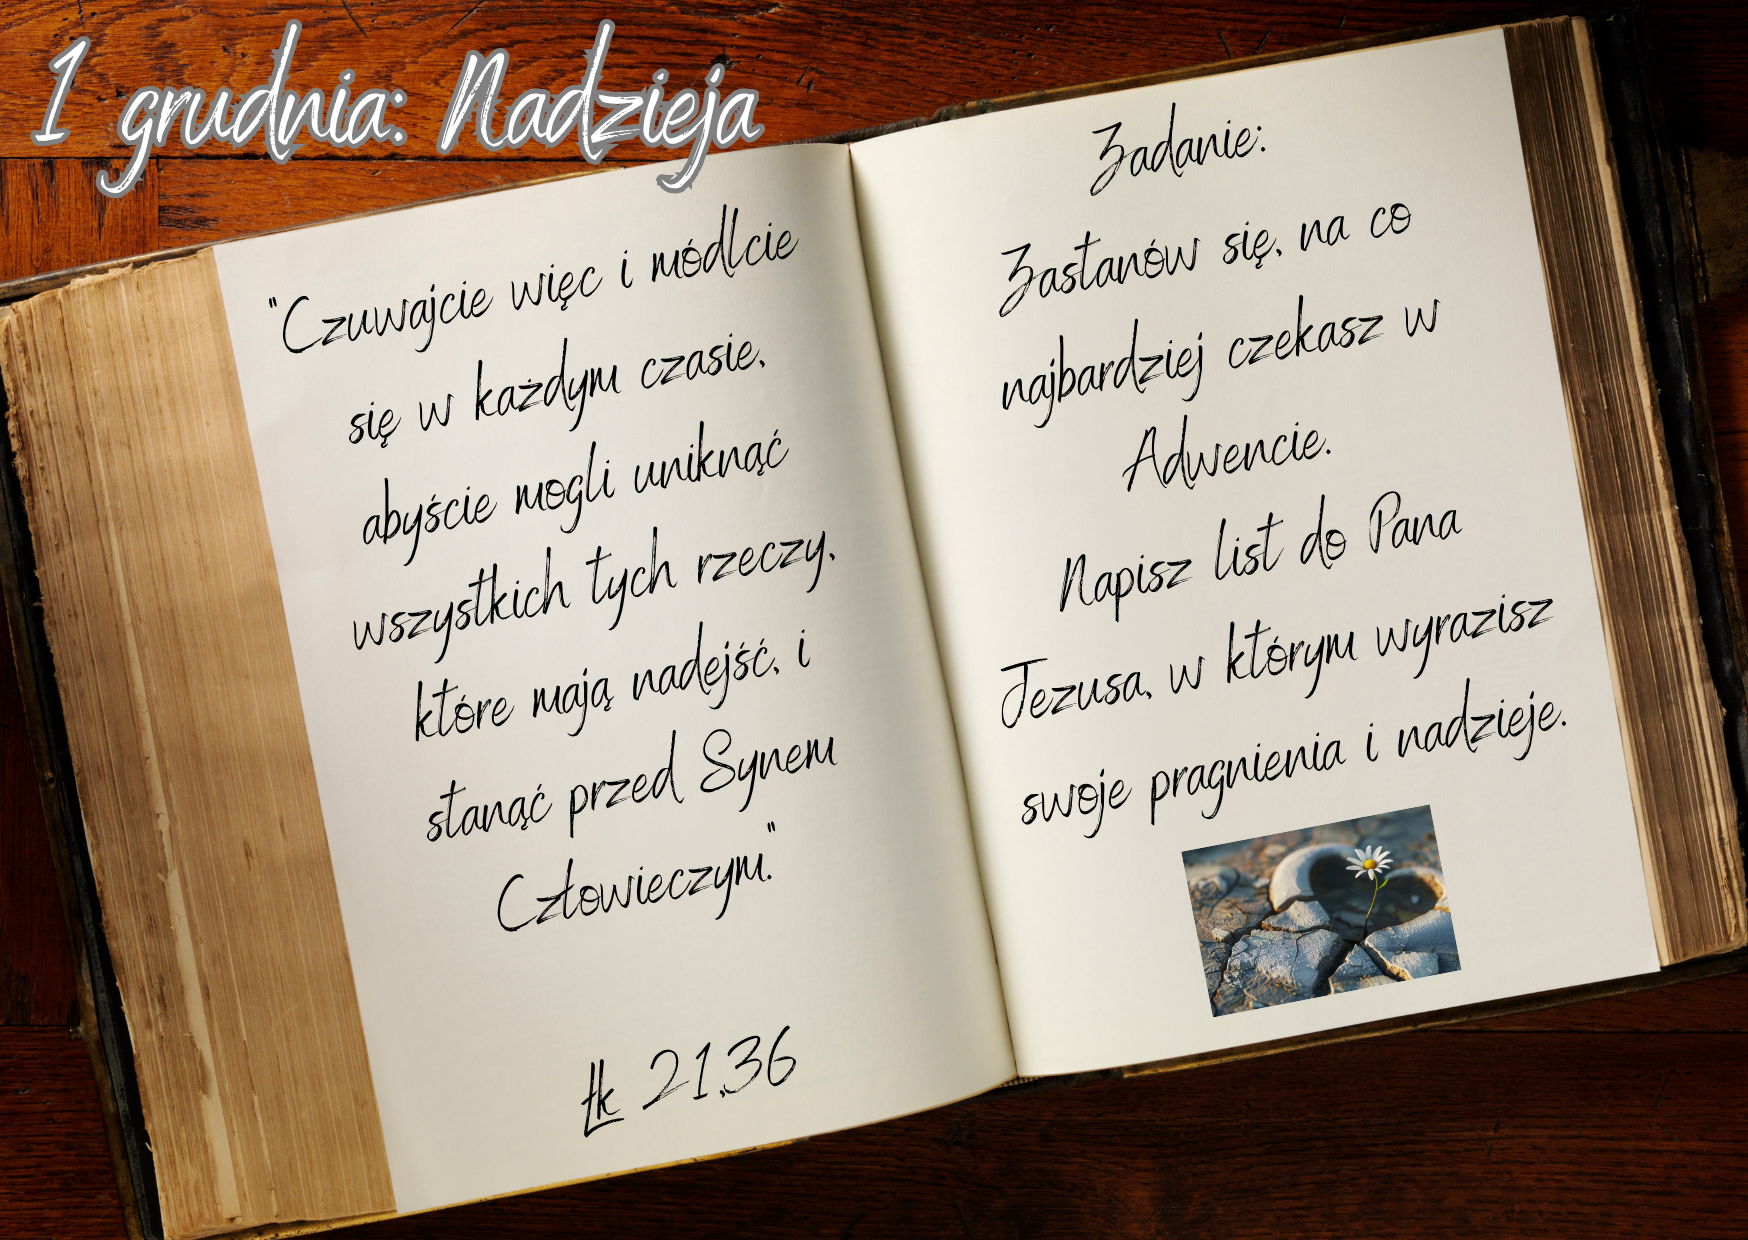 1 grudnia: Nadzieja
"Czuwajcie więc i módlcie
się w każdym czasie,
abyście mogli uniknąć
wszystkich tych rzeczy,
które mają nadejść, i
stanąć przed Synem
Człowieczym."
Łk 21,36
Zadanie:
Zastanów się, na co
najbardziej czekasz w
Adwencie.
Napisz list do Pana
Jezusa, w którym wyrazisz
swoje pragnienia i nadzieje.